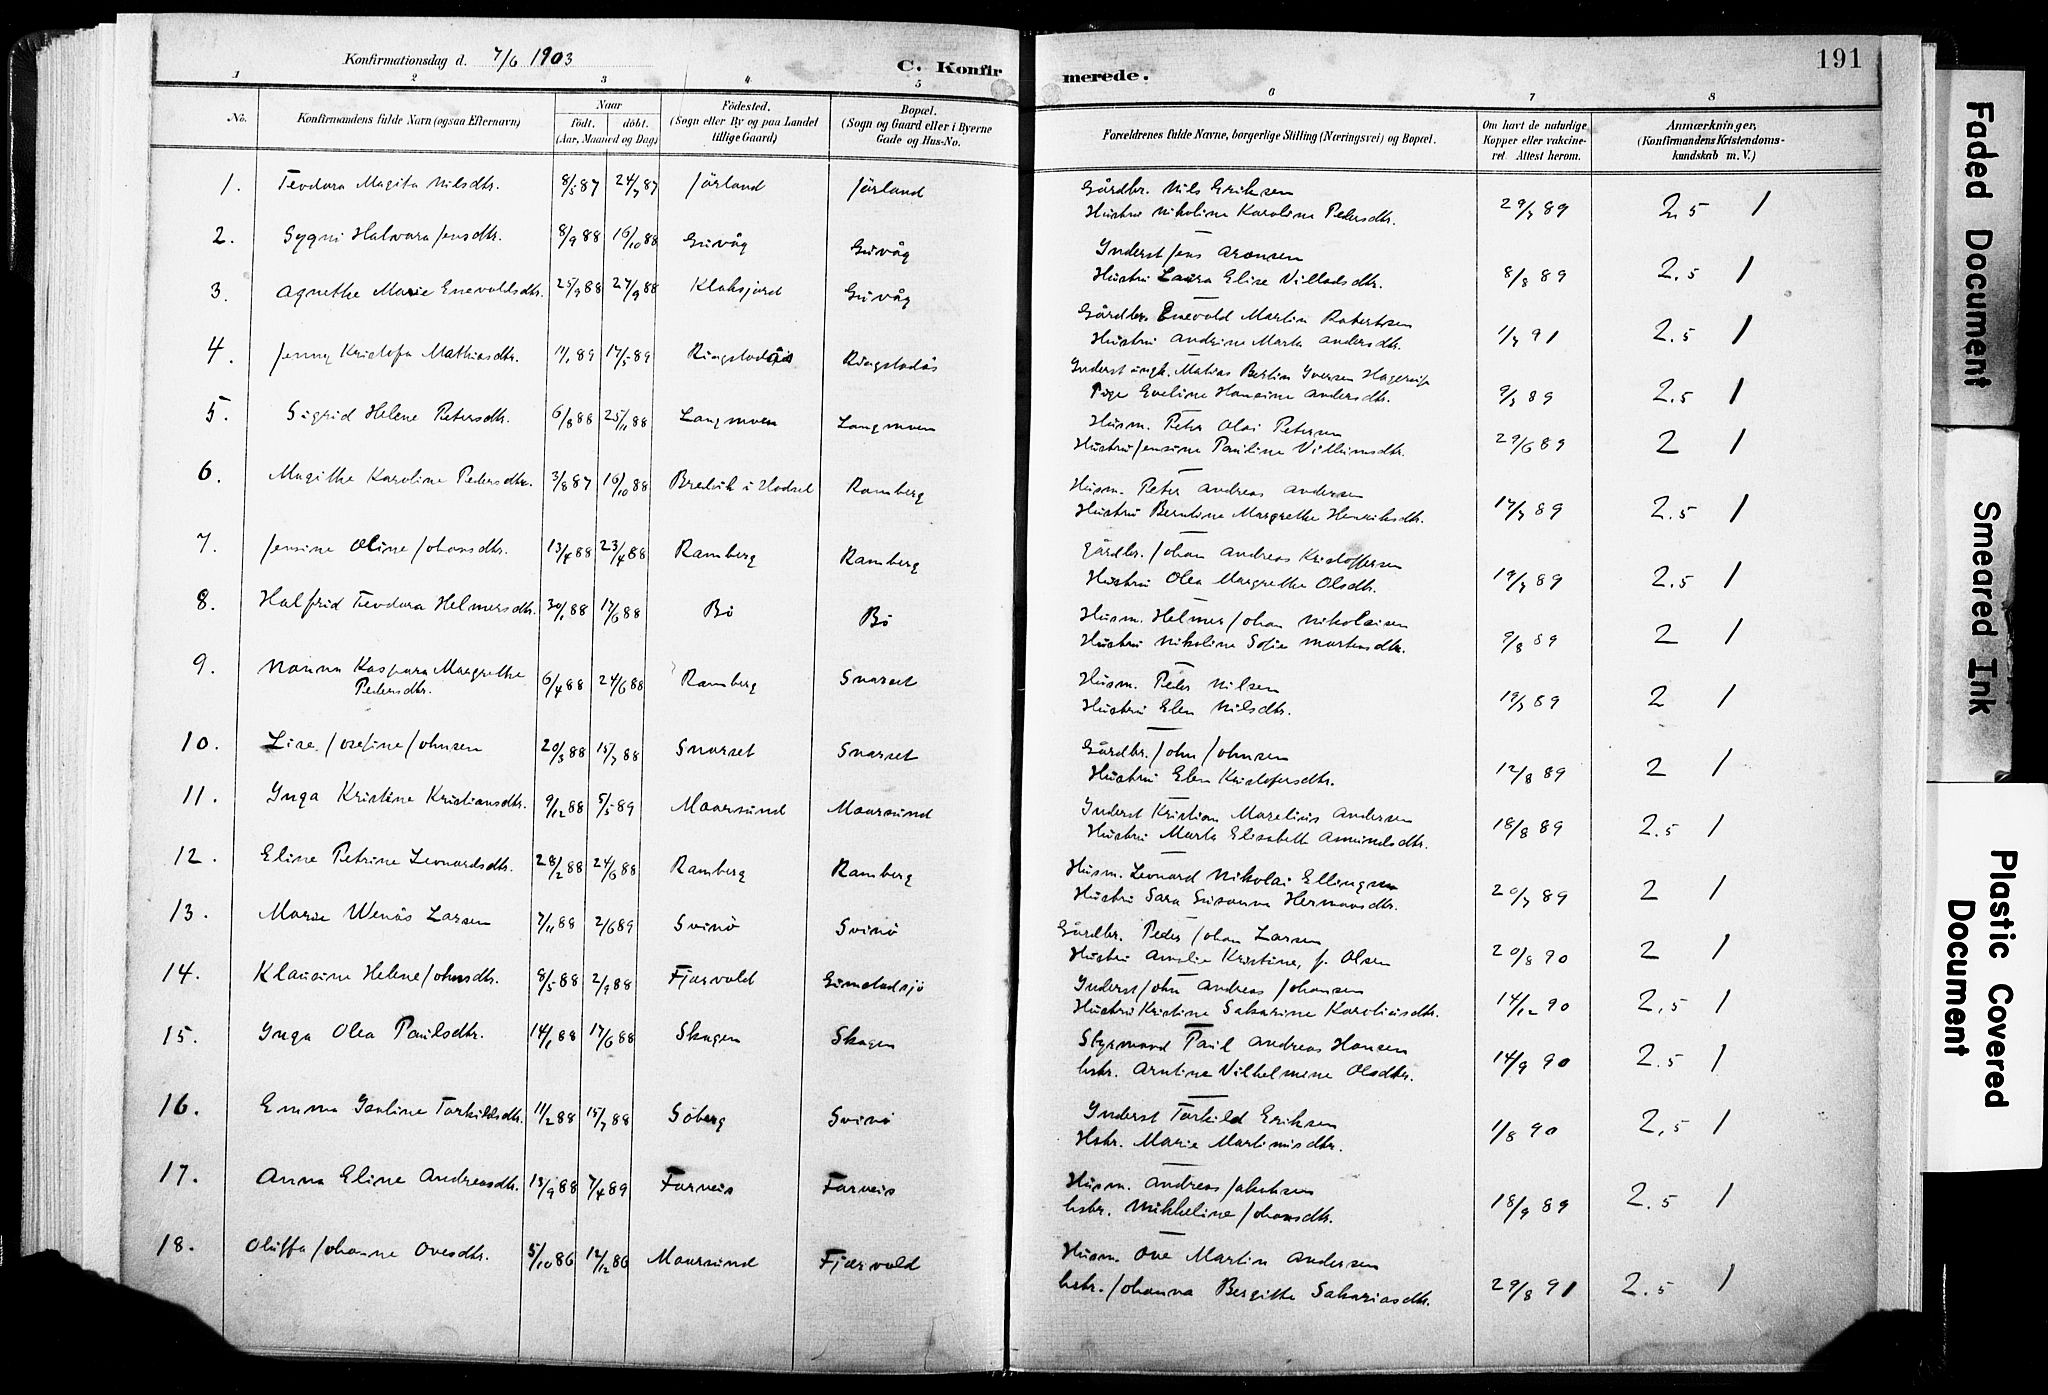 Konfirmationsdag d. 7/6 1903
C. Konfirmerede.
191
1 2 3 4 5 6 7 8
No.
Konfirmandens fulde Navn (ogsaa Efternavn)
Naar
födt. döbt.
(Aar, Maaned og Dag)
Födested.
(Sogn eller By og paa Landet
tillige Gaard)
Bopæl.
(Sogn og Gaard eller i Byerne
Gade og Hus-No.
Forældrenes fulde Navne, borgerlige Stilling (Næringsvei) og Bopæl.
Om havt de naturlige
Kopper eller vakcine-
ret. Attest herom.
Anmærkninger,
(Konfirmandens Kristendoms-
kundskab m. V.)
1. Teodora Magita Nilsdtr. 8/5 87 24/7 87 Jörland Jörland Gårdbr. Nils Eriksen
Hustru Nikoline Karoline Petersdtr. 29/7 89 2.5 1
2. Sygni Halvara Jensdtr. 8/9 88 16/10 88 Guvåg Guvåg Inderst Jens Aronsen
Hustru Laura Elise Villadsdtr. 8/8 89 2.5 1
3. Agnethe Marie Enevoldsdtr. 25/9 88 27/9 88 Klaksjord Guvåg Gårdbr. Enevold Martin Robertsen
Hustru Andrine Marta Andersdtr. 1/7 91 2.5 1
4. Jenny Kristofa Mathiasdtr. 11/1 89 17/5 89 Ringstadås Ringstadås Inderst ungk. Matias Bertin Iversen
Pige Eveline Hansine Andersdtr. 9/7 89 2.5 1
5. Sigrid Helene Petersdtr. 6/8 88 25/11 88 Langmoen Langmoen Husm. Peter Olai Petersen
Hustru Jensine Pauline Villumsdtr. 29/6 89 2 1
6. Magithe Karoline Pedersdtr. 3/8 87 16/10 88 Bredvik i Hadsel Ramberg Husm. Peter Andreas Andersen
Hustru Berntine Margrethe Henriksdtr. 17/7 89 2.5 1
7. Jensine Oline Johansdtr. 13/4 88 23/4 88 Ramberg Ramberg Gårdbr. Johan Andreas Kristoffersen
Hustru Olea Margrethe Olsdtr. 19/7 89 2.5 1
8. Halfrid Teodora Helmersdtr. 30/1 88 17/6 88 Bö Bö Husm. Helmer Johan Nikolaisen
Hustru Nikoline Sofie Martensdtr. 9/8 89 2 1
9. Nanna Kaspara Margrethe
Pedersdtr. 6/4 88 24/6 88 Ramberg Snarset Husm. Peder Nilsen
Hustru Elen Nilsdtr. 19/7 89 2 1
10. Lise Josefine Johnsen 20/3 88 15/7 88 Snarset Snarset Gårdbr. John Johnsen
Hustru Elen Kristofersdtr. 12/8 89 2 1
11. Inga Kristine Kristiansdtr. 9/12 88 5/5 89 Maarsund Maarsund Inderst Kristian Marelius Andersen
Hustru Marta Elisabeth Amundsdtr. 18/8 89 2.5 1
12. Eline Petrine Leonardsdtr. 28/2 88 24/6 88 Ramberg Ramberg Husm. Leonard Nikolai Ellingsen
Hustru Sara Susanna Hermansdtr. 20/7 89 2 1
13. Marie Wenås Larsen 7/11 88 2/6 89 Svinö Svinö Gårdbr. Peder Johan Larsen
Hustru Amalie Kristine, f. Olsen 20/8 90 2 1
14. Klausine Helene Johnsdtr. 8/5 88 2/9 88 Fjærvold Gunstadsjö Inderst John Andreas Johansen
Hustru Kristine Sakarine Karoliusdtr. 14/12 90 2.5 1
15. Inga Olea Paulsdtr. 14/1 88 17/6 88 Skagen Skagen Styrmand Paul Andreas Hansen
hstr. Arntine Vilhelmine Olsdtr. 14/9 90 2.5 1
16. Emma Isoline Torkildsdtr. 11/2 88 15/7 88 Söberg Svinö Inderst Torkild Eriksen
Hstr. Marie Martinusdtr. 1/8 90 2.5 1
17. Anna Eline Andreasdtr. 13/9 88 7/4 89 Forneis Forneis Husm. Andreas Jakobsen
hstr. Mikkeline Johansdtr. 18/9 89 2.5 1
18. Oluffa Johanne Ovesdtr. 5/10 86 12/12 86 Maarsund Fjærvold Husm. Ove Martin Andersen
hstr. Johanna Bergithe Sakariasdtr. 29/8 91 2.5 1
Faded Document
Smeared Ink
Plastic Covered
Document